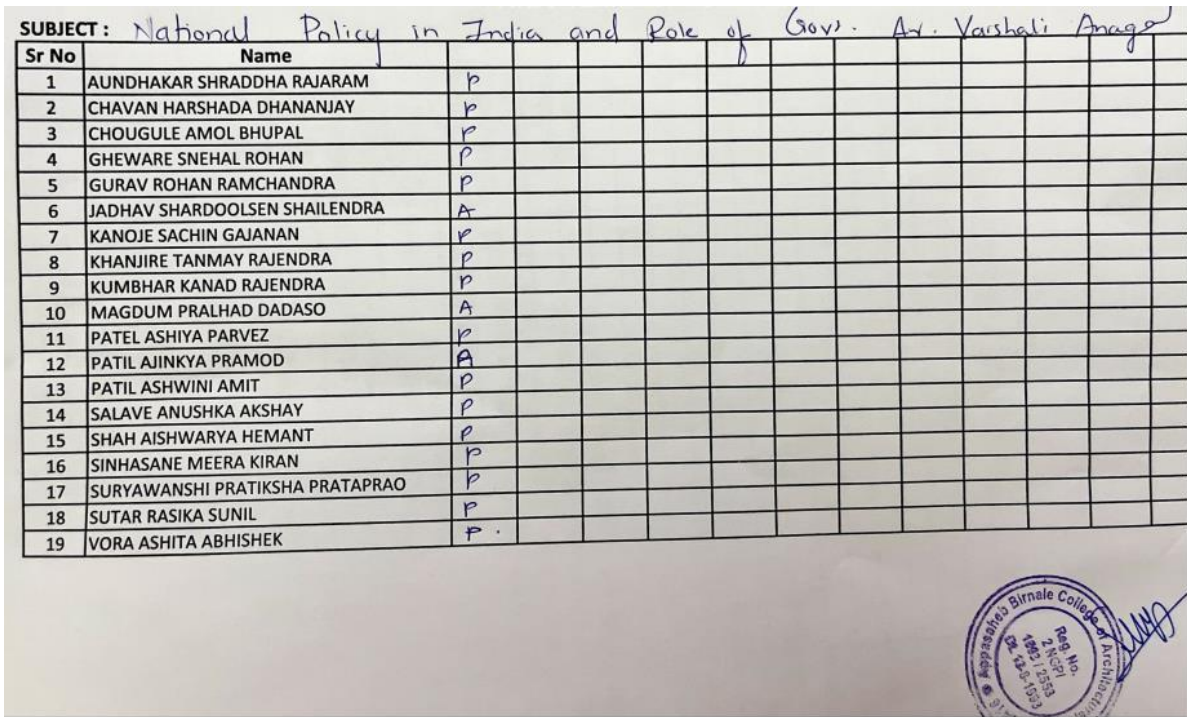 SUBJECT : National Policy in India and Role of Govt. Ar. Varshali
Sr No Name
1 AUNDHAKAR SHRADDHA RAJARAM P
2 CHAVAN HARSHADA DHANANJAY P
3 CHOUGULE AMOL BHUPAL P
4 GHEWARE SNEHAL ROHAN P
5 GURAV ROHAN RAMCHANDRA P
6 JADHAV SHARDOOLSEN SHAILENDRA A
7 KANOJE SACHIN GAJANAN P
8 KHANJIRE TANMAY RAJENDRA P
9 KUMBHAR KANAD RAJENDRA P
10 MAGDUM PRALHAD DADASO A
11 PATEL ASHIYA PARVEZ P
12 PATIL AJINKYA PRAMOD A
13 PATIL ASHWINI AMIT P
14 SALAVE ANUSHKA AKSHAY P
15 SHAH AISHWARYA HEMANT P
16 SINHASANE MEERA KIRAN P
17 SURYAWANSHI PRATIKSHA PRATAPRAO P
18 SUTAR RASIKA SUNIL P
19 VORA ASHITA ABHISHEK P.
Appasaheb Birnale College of
Reg. No.
2 NGPI